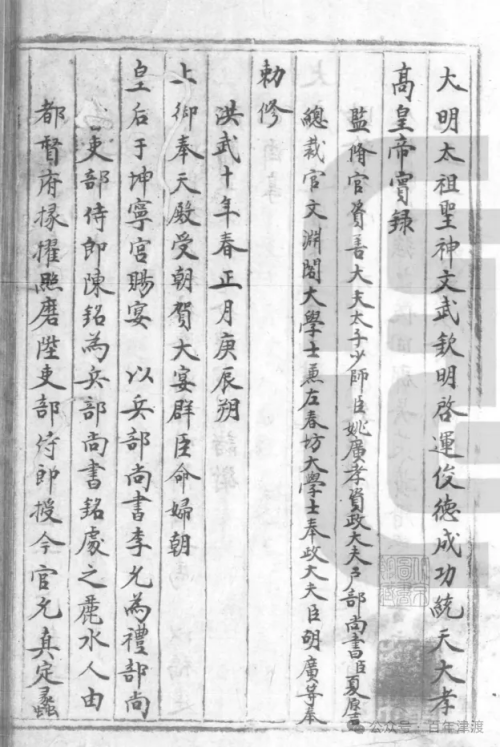 大明太祖聖神文武欽明啓運俊德成功統天大孝
高皇帝實録
監脩官資善大夫太子少師臣姚廣孝資政大夫戶部尚書臣夏原吉
總裁官文淵閣大學士兼左春坊大學士奉政大夫臣胡廣等奉
勅修
洪武十年春正月庚辰朔
上御奉天殿受朝賀大宴群臣命婦朝
皇后于坤寧宮賜宴 以兵部尚書李允為禮部尚
書吏部侍郎陳銘為兵部尚書銘處之麗水人由
都督府掾擢照磨陞吏部侍郎授今官允真定蠡
公众号：百年津渡